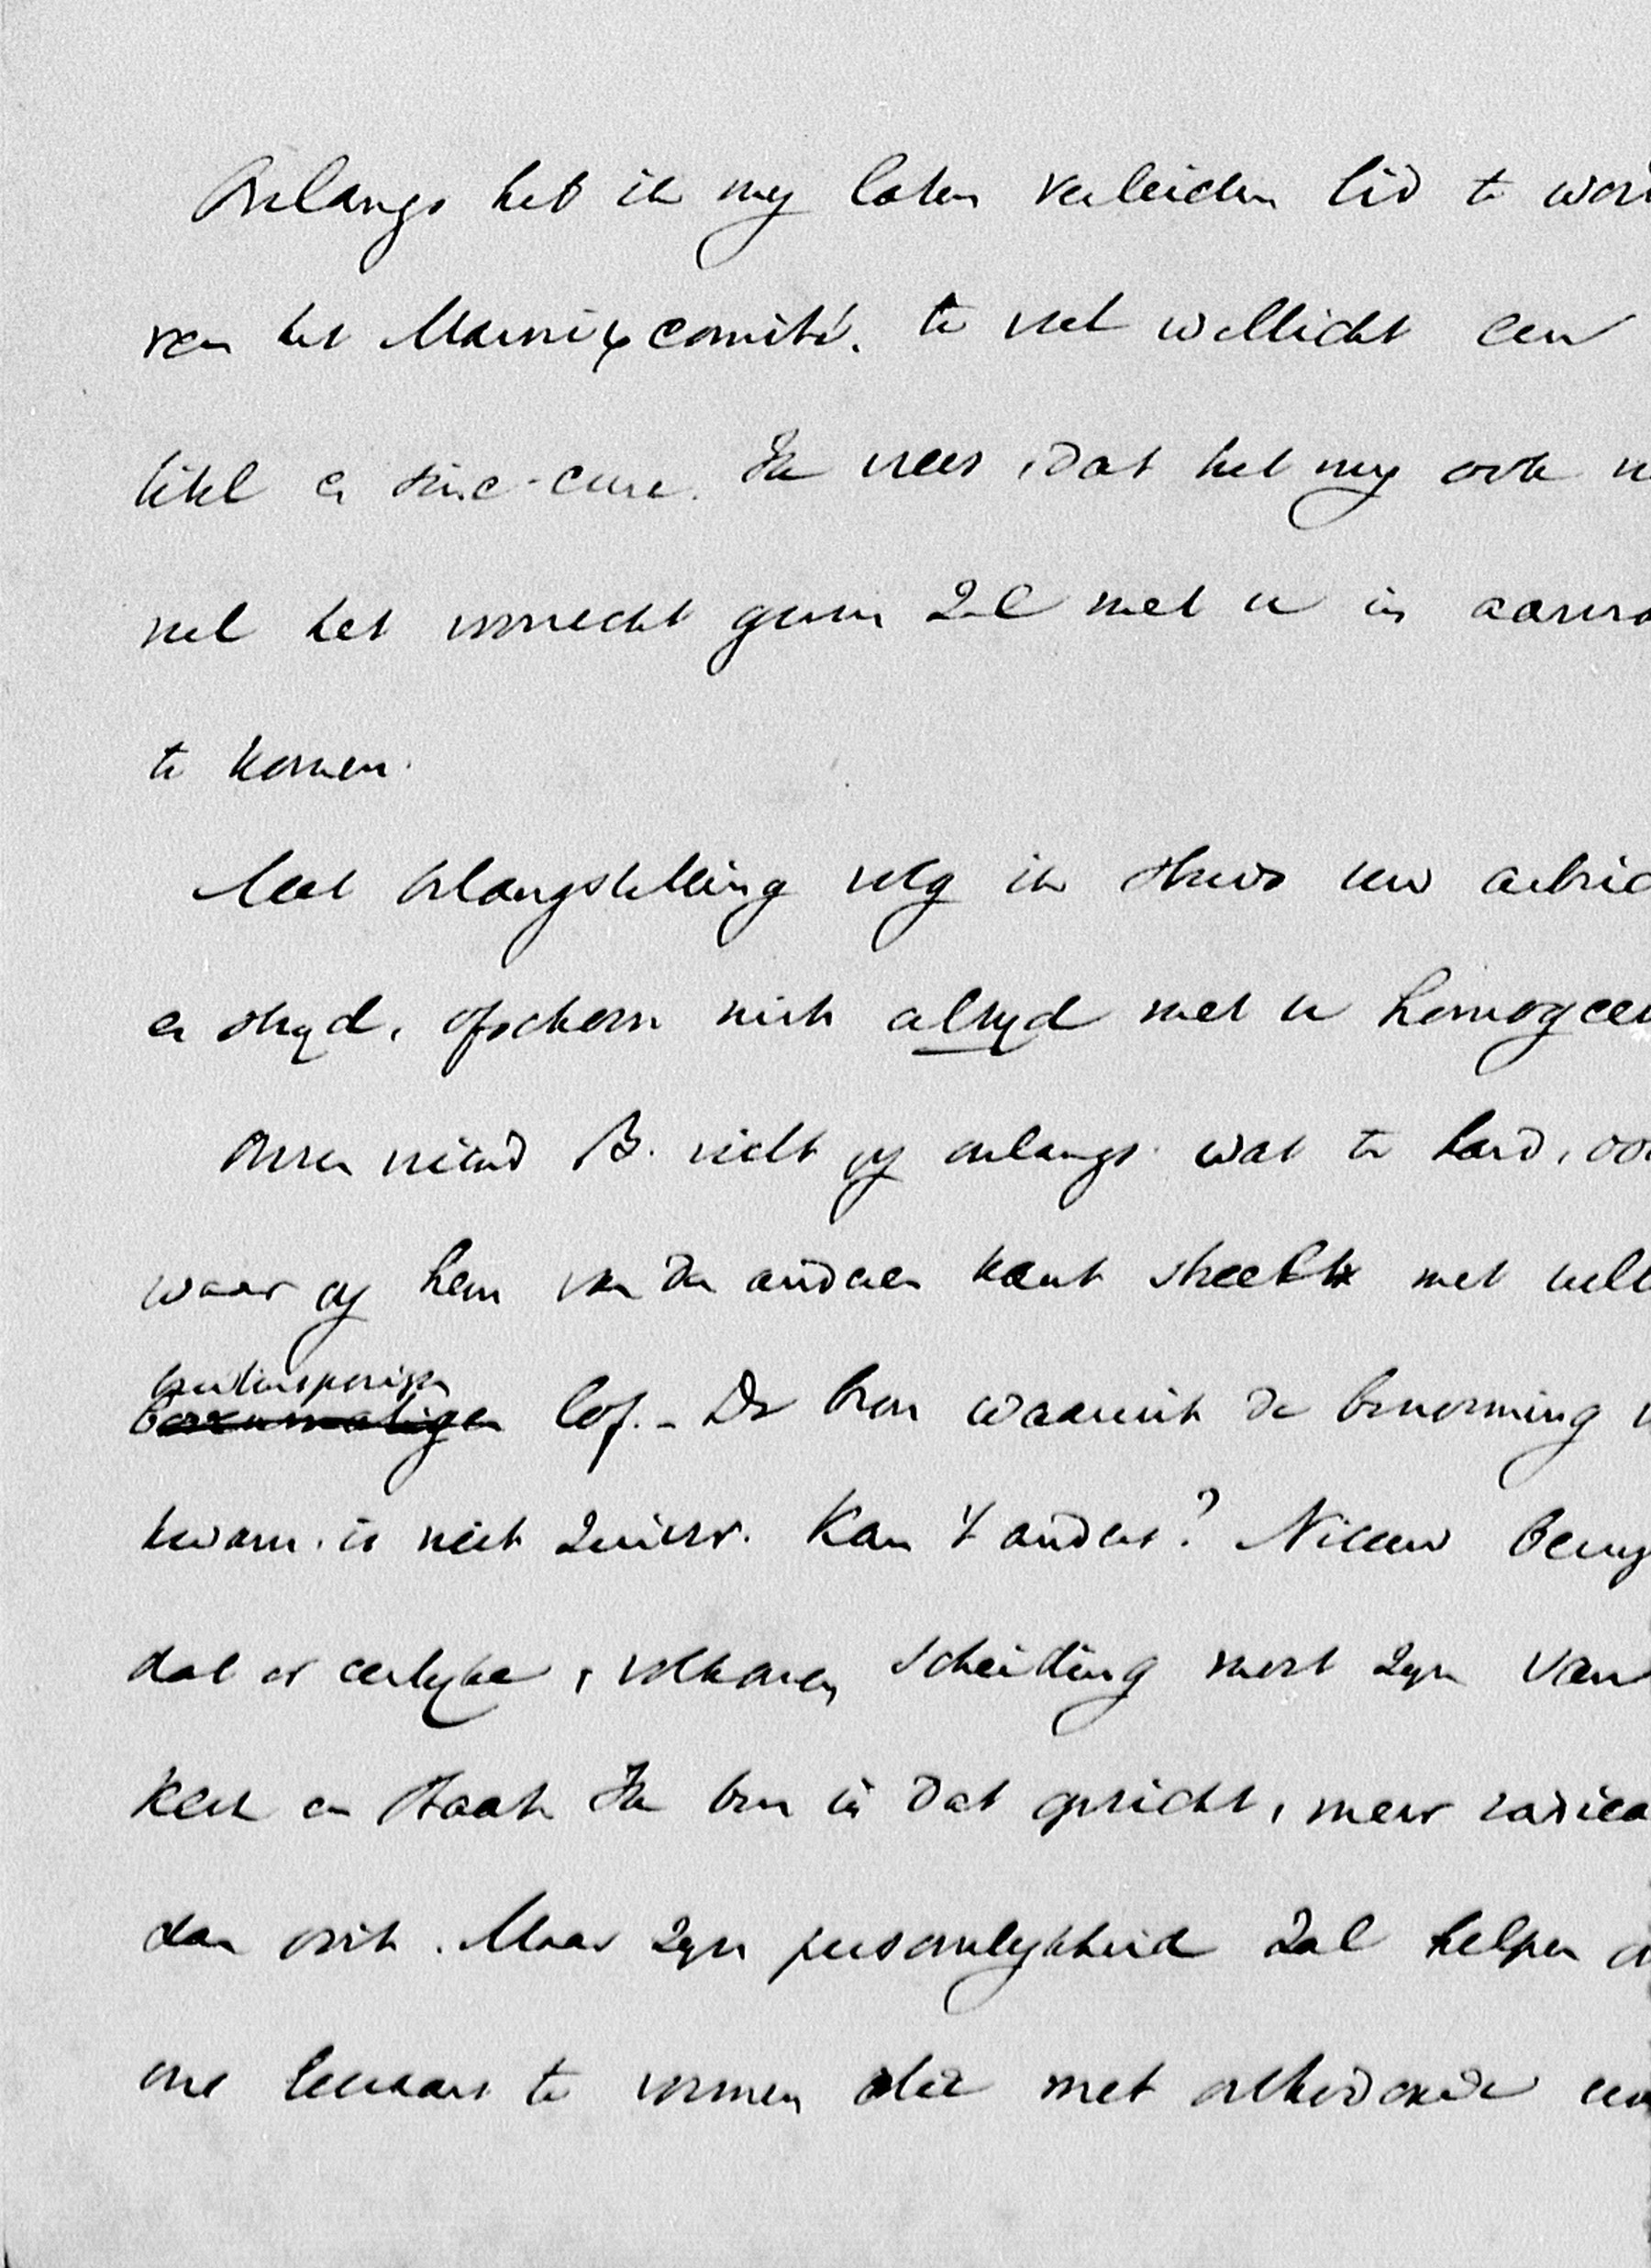 Onlangs heb ik my laten verleiden lid te wor
van het Marnixcomité. te veel wellicht een
titel en sine-cure. Ik vrees, dat het my ook n
veel het voorrecht geven zal met u in aanra
te komen.
Met belangstelling volg ik steeds uw arbeid
en stryd, ofschoon niet altyd met u homogeen
Onzen vriend B. vielt gy onlangs wat te hard, oo
waar gy hem van den anderen kant streelt met
buitensporigen lof. - De bron waaruit de benoeming v
kwam. is niet zuiver. Kan 't anders? Nieuw bewy
dat er eerlyke, volkomen scheiding moet zyn van
Kerk en Staat. Ik ben in dat opzicht, meer radica
dan ooit. Maar zyn persoonlykheid zal helpen o
ons leeraars te vormen die met orthodoxie een